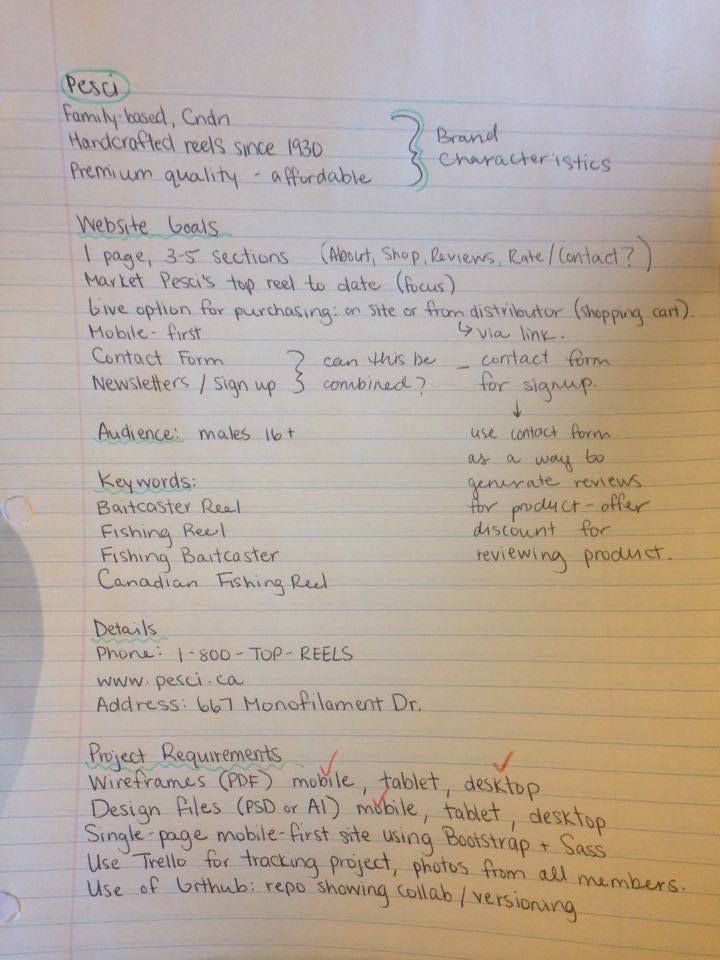 Pesci
Family-based, Cndn
Handcrafted reels since 1930
Premium quality - affordable
Brand
Characteristics
Website Goals
1 page, 3-5 sections (About, Shop, Reviews, Rate/Contact?)
Market Pesci's top reel to date (focus)
Give option for purchasing: on site or from distributor (shopping cart).
↳ via link.
Mobile-first
Contact Form
Newsletters / Sign up
can this be
combined?
- contact form
for signup.
↓
use contact form
as a way to
generate reviews
for product - offer
discount for
reviewing product.
Audience: males 16+
Keywords:
Baitcaster Reel
Fishing Reel
Fishing Baitcaster
Canadian Fishing Reel
Details
Phone: 1-800-TOP-REELS
www.pesci.ca
Address: 667 Monofilament Dr.
Project Requirements
Wireframes (PDF) mobile, tablet, desktop
Design files (PSD or AI) mobile, tablet, desktop
Single-page mobile-first site using Bootstrap + Sass
Use Trello for tracking project, photos from all members.
Use of Github: repo showing collab / versioning